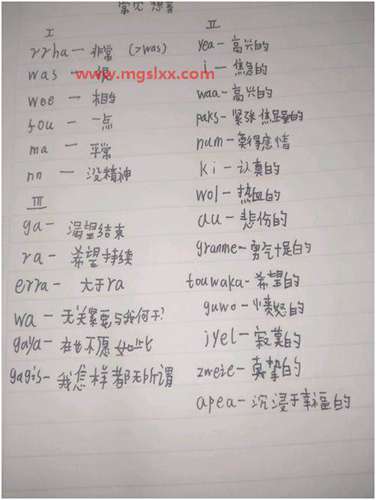 常见想音
I
rrha — 非常 (>was)
was — 很
www.mgslxx.com
wee — 相当
fou — 一点
ma — 平常
nn — 没精神
III
ga — 渴望结束
ra — 希望持续
erra — 大于ra
wa — 无关紧要与我何干?
gaya — 在也不愿如此
gagis — 我怎样都无所谓
II
yea — 高兴的
i — 焦急的
waa — 高兴的
paks — 紧张焦虑的
num — 莫得感情
ki — 认真的
wol — 热血的
au — 悲伤的
granme — 勇气十足的
touwaka — 希望的
guwo — 愤怒的
iyel — 寂寞的
zweie — 真挚的
apea — 沉浸于幸福的